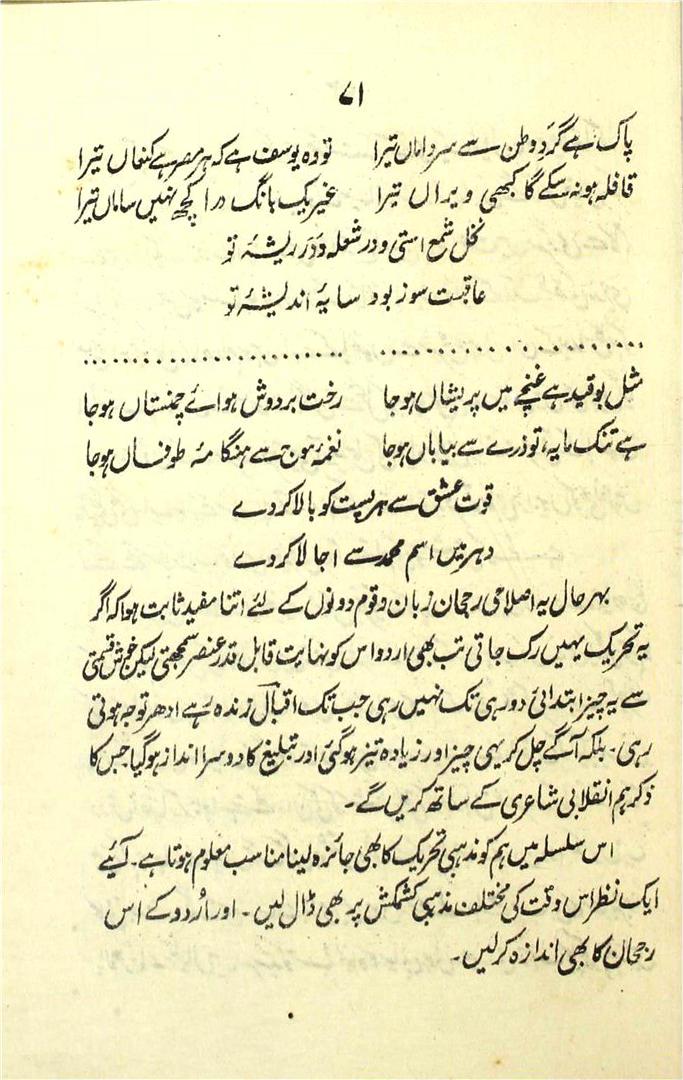 ۷۱
پاک ہے گردِ وطن سے سرِ داماں تیرا تو وہ یوسف ہے کہ ہر مصر ہے کنعاں تیرا
قافلہ ہو نہ سکے گا کبھی ویراں تیرا غیر یک بانگِ درا کچھ نہیں ساماں تیرا
نخل شمع استی و در شعلہ دَوَد ریشۂ تو
عاقبت سوز بود سایۂ اندیشۂ تو
........................ ........................
مثلِ بو قید ہے غنچے میں پریشاں ہوجا رخت بردوش ہوائے چمنستاں ہوجا
ہے تنک مایہ، تو ذرے سے بیاباں ہوجا نغمۂ موج سے ہنگامۂ طوفاں ہوجا
قوت عشق سے ہر پست کو بالا کردے
دہر میں اسم محمد سے اجالا کردے
بہر حال یہ اصلاحی رجحان زبان و قوم دونوں کے لئے اتنا مفید ثابت ہوا کہ اگر
یہ تحریک یہیں رک جاتی تب بھی اردو اس کو نہایت قابل قدر عنصر سمجھتی لیکن خوش قسمتی
سے یہ چیز ابتدائی دور ہی تک نہیں رہی جب تک اقبالؔ زندہ رہے ادھر توجہ ہوتی
رہی۔ بلکہ آگے چل کر یہی چیز اور زیادہ تیز ہوگئی اور تبلیغ کا دوسرا انداز ہوگیا جس کا
ذکر ہم انقلابی شاعری کے ساتھ کریں گے۔
اس سلسلہ میں ہم کو مذہبی تحریک کا بھی جائزہ لینا مناسب معلوم ہوتا ہے۔ آیئے
ایک نظر اس وقت کی مختلف مذہبی کشمکش پر بھی ڈال لیں۔ اور اُردو کے اس
رجحان کا بھی اندازہ کرلیں۔